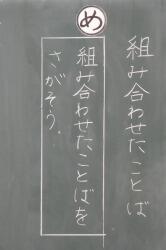 組み合わせたことば
め
組み合わせたことばを
さがそう。